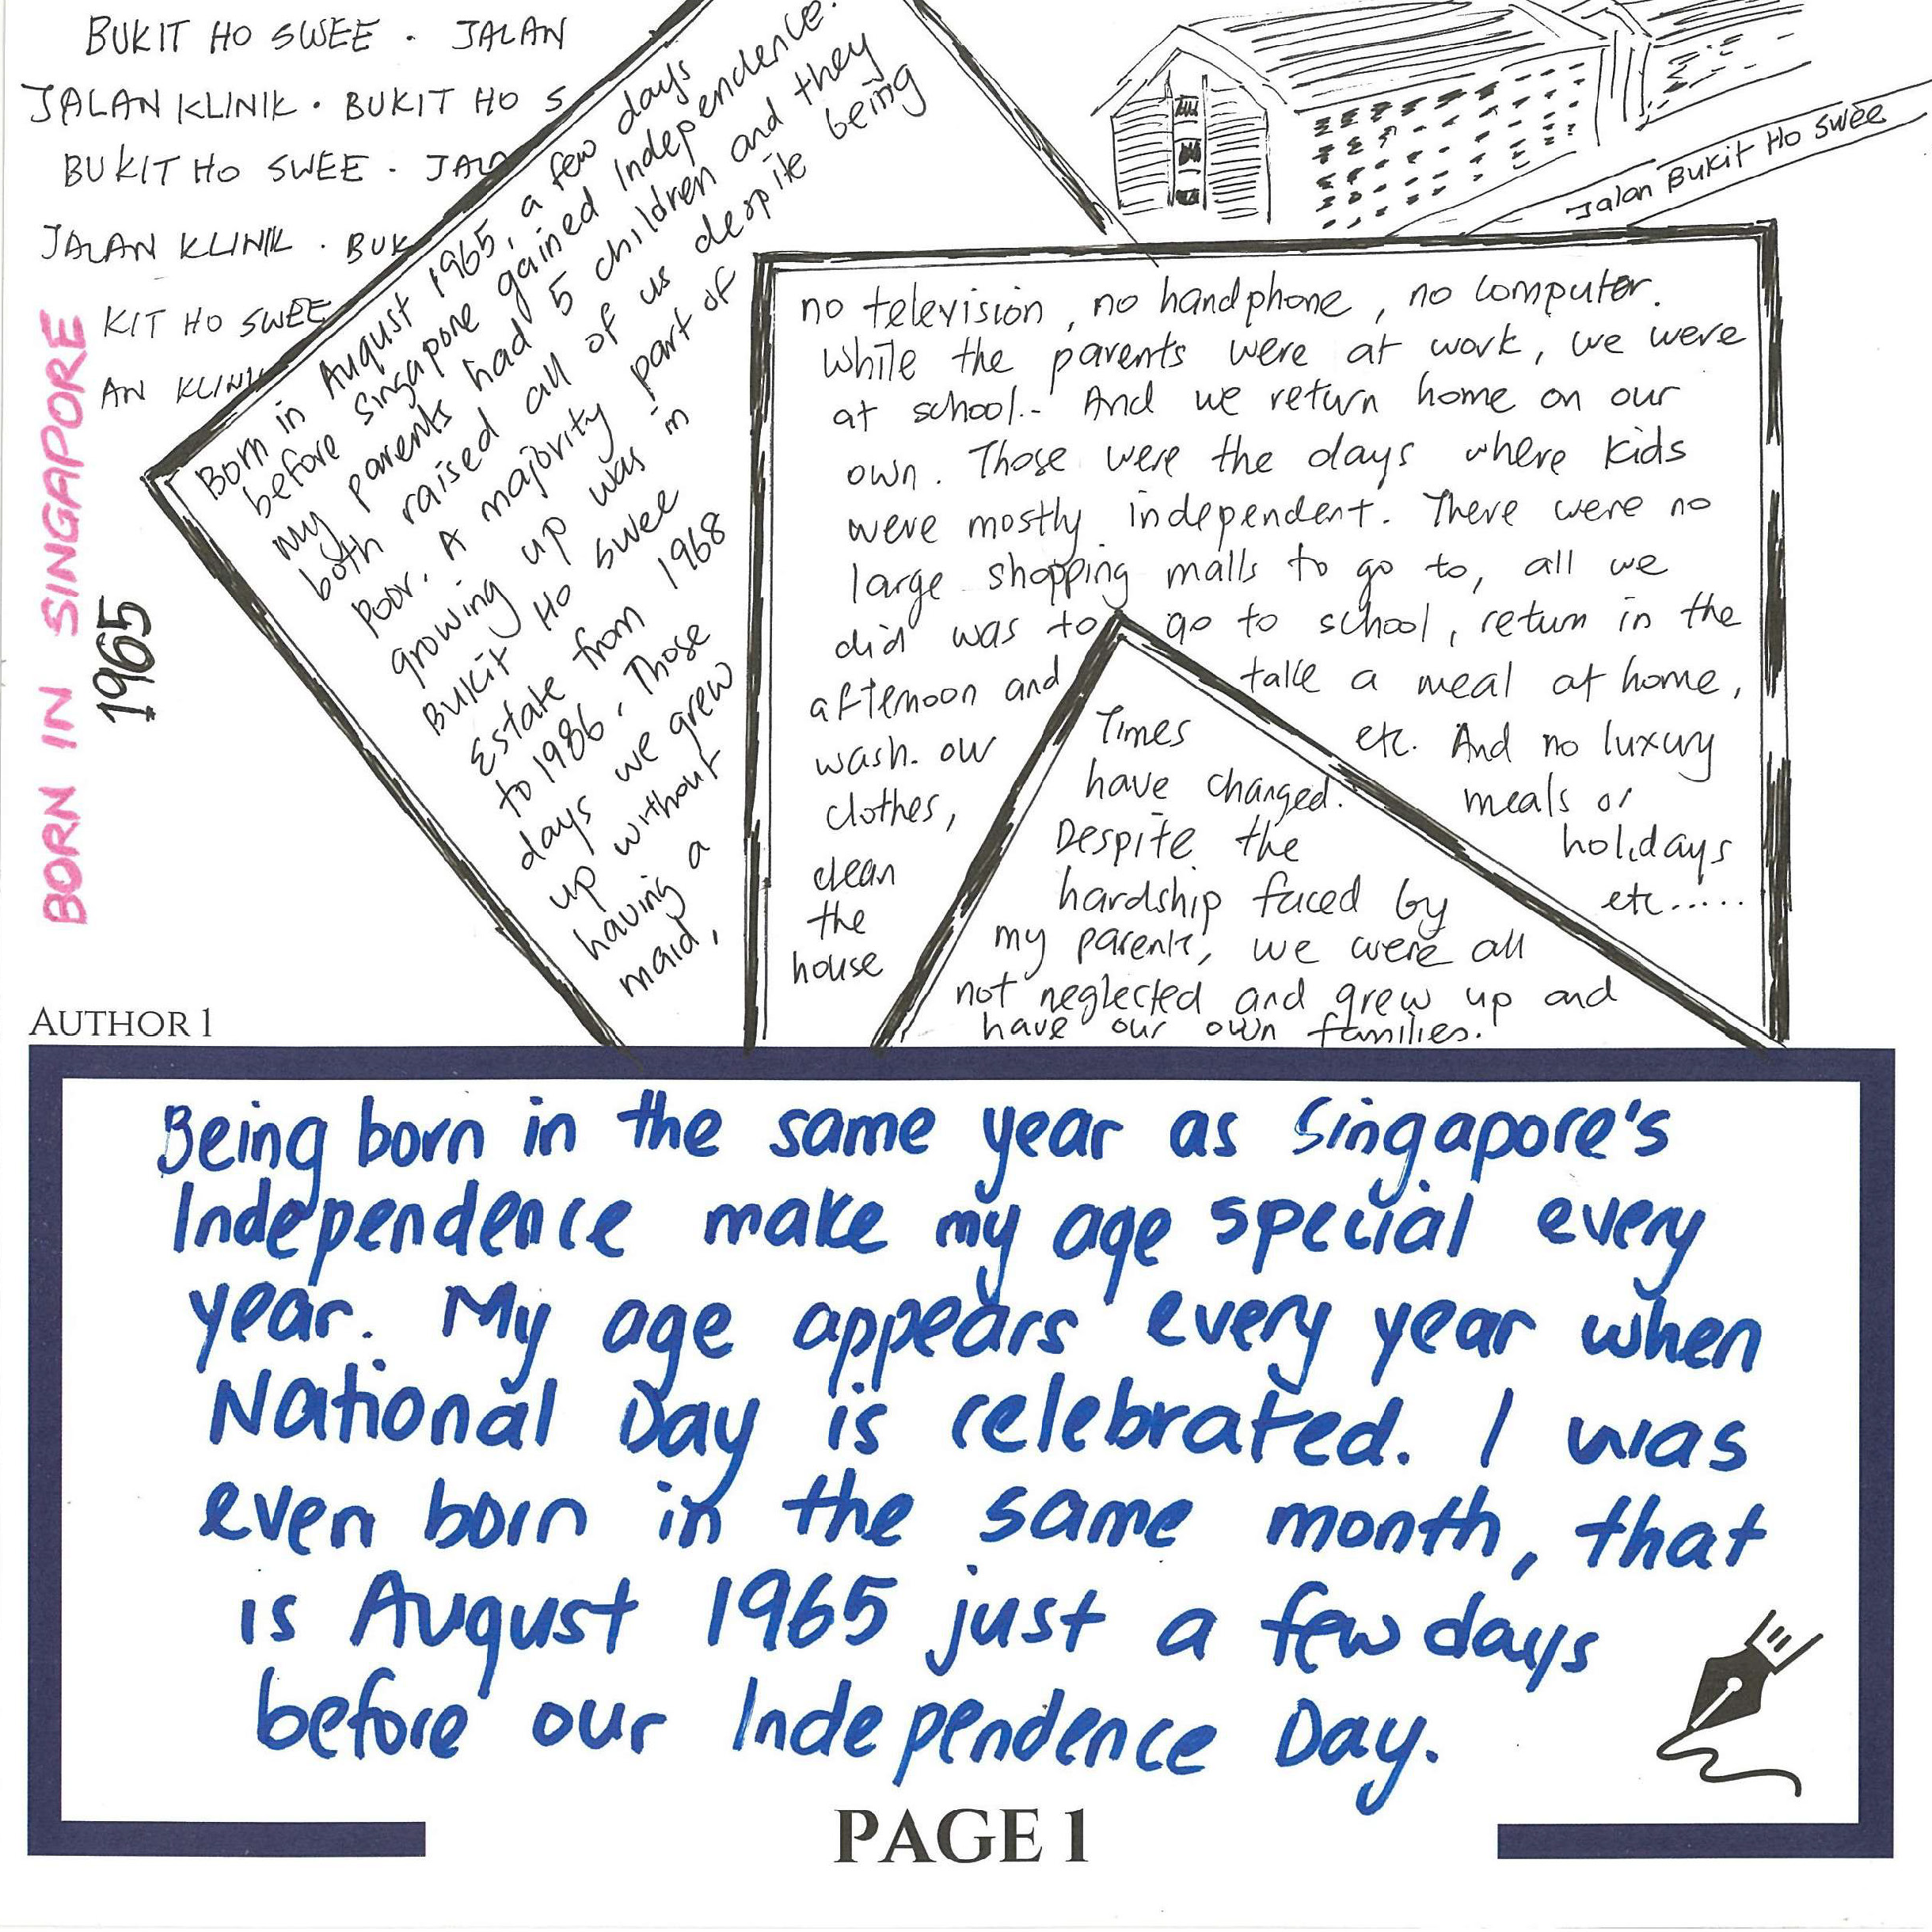 BUKIT HO SWEE . JALAN
JALAN KLINIK . BUKIT HO S
BUKIT HO SWEE . JALA
JALAN KLINIK . BUK
KIT HO SWEE
AN KLINI
BORN IN SINGAPORE
1965
Jalan Bukit Ho Swee
Born in August 1965, a few days
before Singapore gained Independence.
My parents had 5 children and they
both raised all of us despite being
poor. A majority part of
growing up was in
Bukit Ho Swee
Estate from 1968
to 1986. Those
days we grew
up without
having a
maid,
no television, no handphone, no computer.
While the parents were at work, we were
at school.. And we return home on our
own. Those were the days where kids
were mostly independent. There were no
large shopping malls to go to, all we
did was to go to school, return in the
afternoon and take a meal at home,
wash our etc. And no luxury
clothes, meals or
clean holidays
the etc.....
house
Times
have changed.
Despite the
hardship faced by
my parents, we were all
not neglected and grew up and
have our own families.
AUTHOR 1
Being born in the same year as Singapore's
Independence make my age special every
year. My age appears every year when
National Day is celebrated. I was
even born in the same month, that
is August 1965 just a few days
before our Independence Day.
PAGE 1